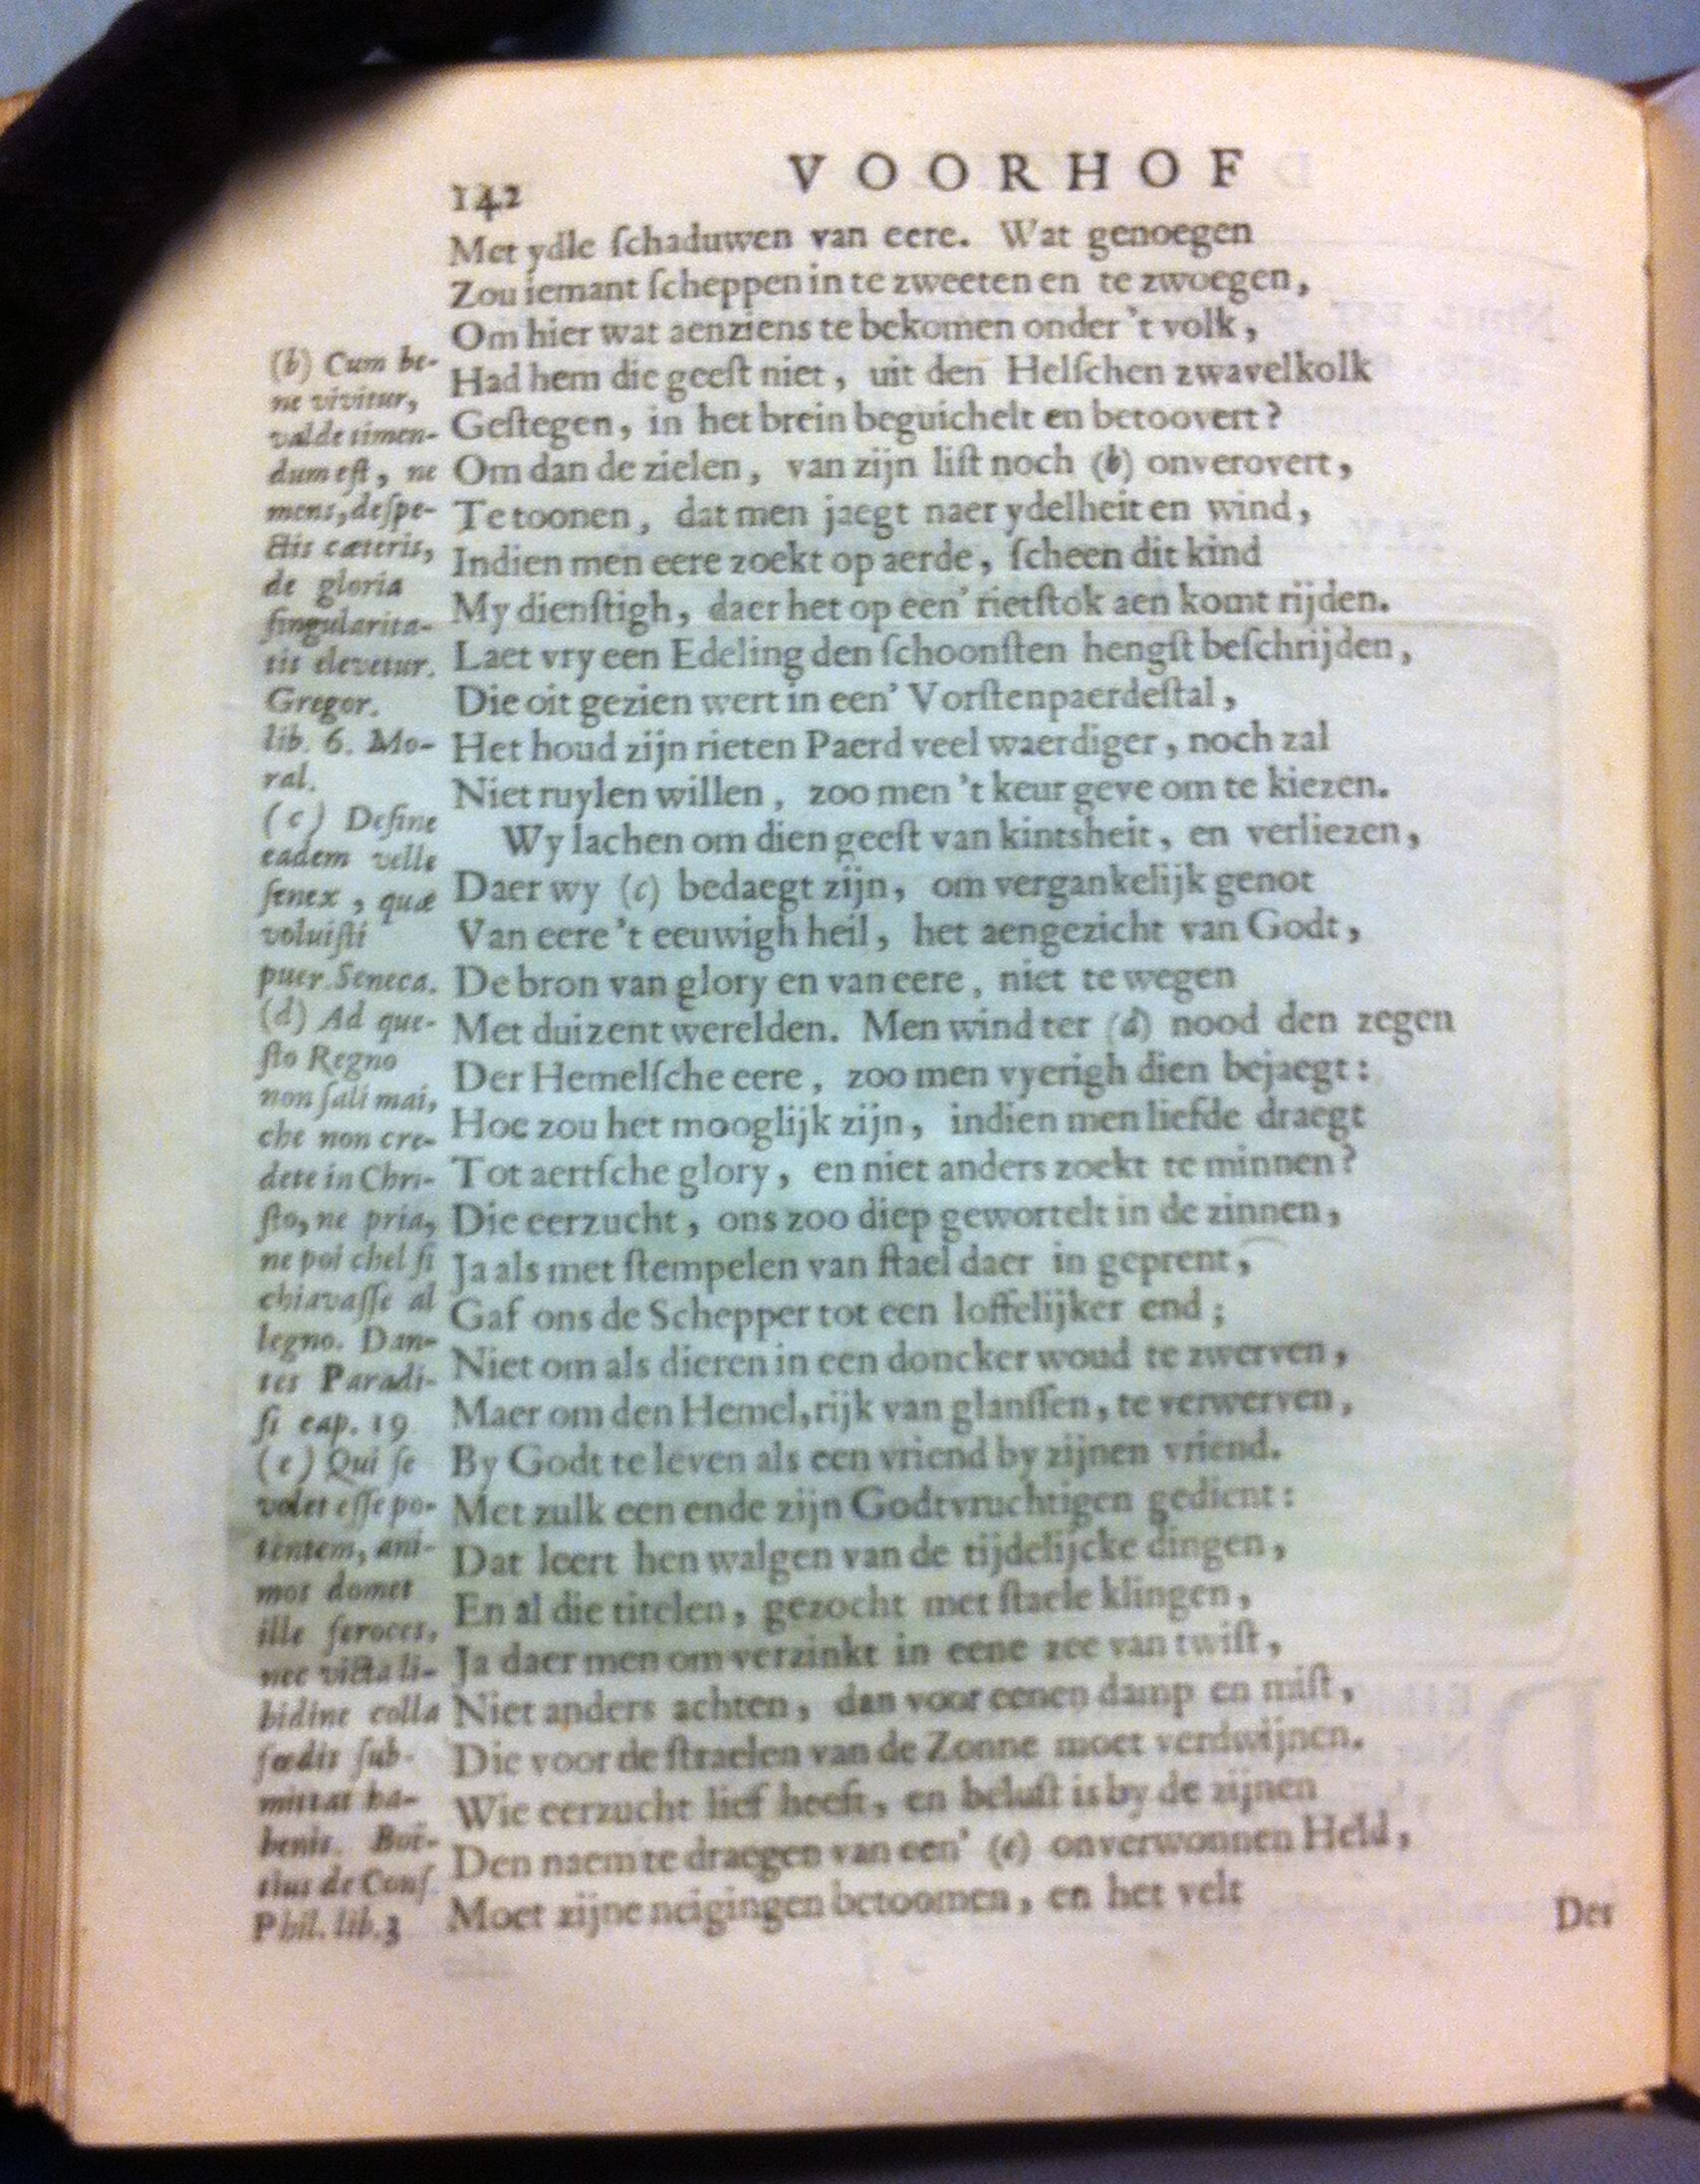 142
VOORHOF
Met ydle ſchaduwen van eere. Wat genoegen
Zou iemant ſcheppen in te zweeten en te zwoegen,
Om hier wat aenziens te bekomen onder 't volk,
Had hem die geeſt niet, uit den Helſchen zwavelkolk
Geſtegen, in het brein beguichelt en betoovert?
Om dan de zielen, van zijn liſt noch (b) onverovert,
Te toonen, dat men jaegt naer ydelheit en wind,
Indien men eere zoekt op aerde, ſcheen dit kind
My dienſtigh, daer het op een' rietſtok aen komt rijden.
Laet vry een Edeling den ſchoonſten hengſt beſchrijden,
Die oit gezien wert in een' Vorſtenpaerdeſtal,
Het houd zijn rieten Paerd veel waerdiger, noch zal
Niet ruylen willen, zoo men 't keur geve om te kiezen.
Wy lachen om dien geeſt van kintsheit, en verliezen,
Daer wy (c) bedaegt zijn, om vergankelijk genot
Van eere 't eeuwigh heil, het aengezicht van Godt,
De bron van glory en van eere, niet te wegen
Met duizent werelden. Men wind ter (d) nood den zegen
Der Hemelſche eere, zoo men vyerigh dien bejaegt:
Hoe zou het mooglijk zijn, indien men liefde draegt
Tot aertſche glory, en niet anders zoekt te minnen?
Die eerzucht, ons zoo diep gewortelt in de zinnen,
Ja als met ſtempelen van ſtael daer in geprent,
Gaf ons de Schepper tot een loffelijker end;
Niet om als dieren in een doncker woud te zwerven,
Maer om den Hemel, rijk van glanſſen, te verwerven,
By Godt te leven als een vriend by zijnen vriend.
Met zulk een ende zijn Godtvruchtigen gedient:
Dat leert hen walgen van de tijdelijcke dingen,
En al die titelen, gezocht met ſtaele klingen,
Ja daer men om verzinkt in eene zee van twiſt,
Niet anders achten, dan voor eenen damp en miſt,
Die voor de ſtraelen van de Zonne moet verdwijnen.
Wie eerzucht lief heeft, en beluſt is by de zijnen
Den naem te draegen van een' (e) onverwonnen Held,
Moet zijne neigingen betoomen, en het velt
Der
(b) Cum be-
ne vivitur,
valde timen-
dum eſt, ne
mens, deſpe-
ctis cæteris,
de gloria
ſingularita-
tis elevetur.
Gregor.
lib. 6. Mo-
ral.
(c) Deſine
eadem velle
ſenex, quæ
voluiſti
puer. Seneca.
(d) Ad que-
ſto Regno
non ſali mai,
che non cre-
dete in Chri-
ſto, ne pria,
ne poi chel ſi
chiavaſſe al
legno. Dan-
tes Paradi-
ſi cap. 19
(e) Qui ſe
volet eſſe po-
tentem, ani-
mos domet
ille feroces,
nec victa li-
bidine colla
fœdis ſub-
mittat ha-
benis. Boë-
tius de Conſ.
Phil. lib. 3